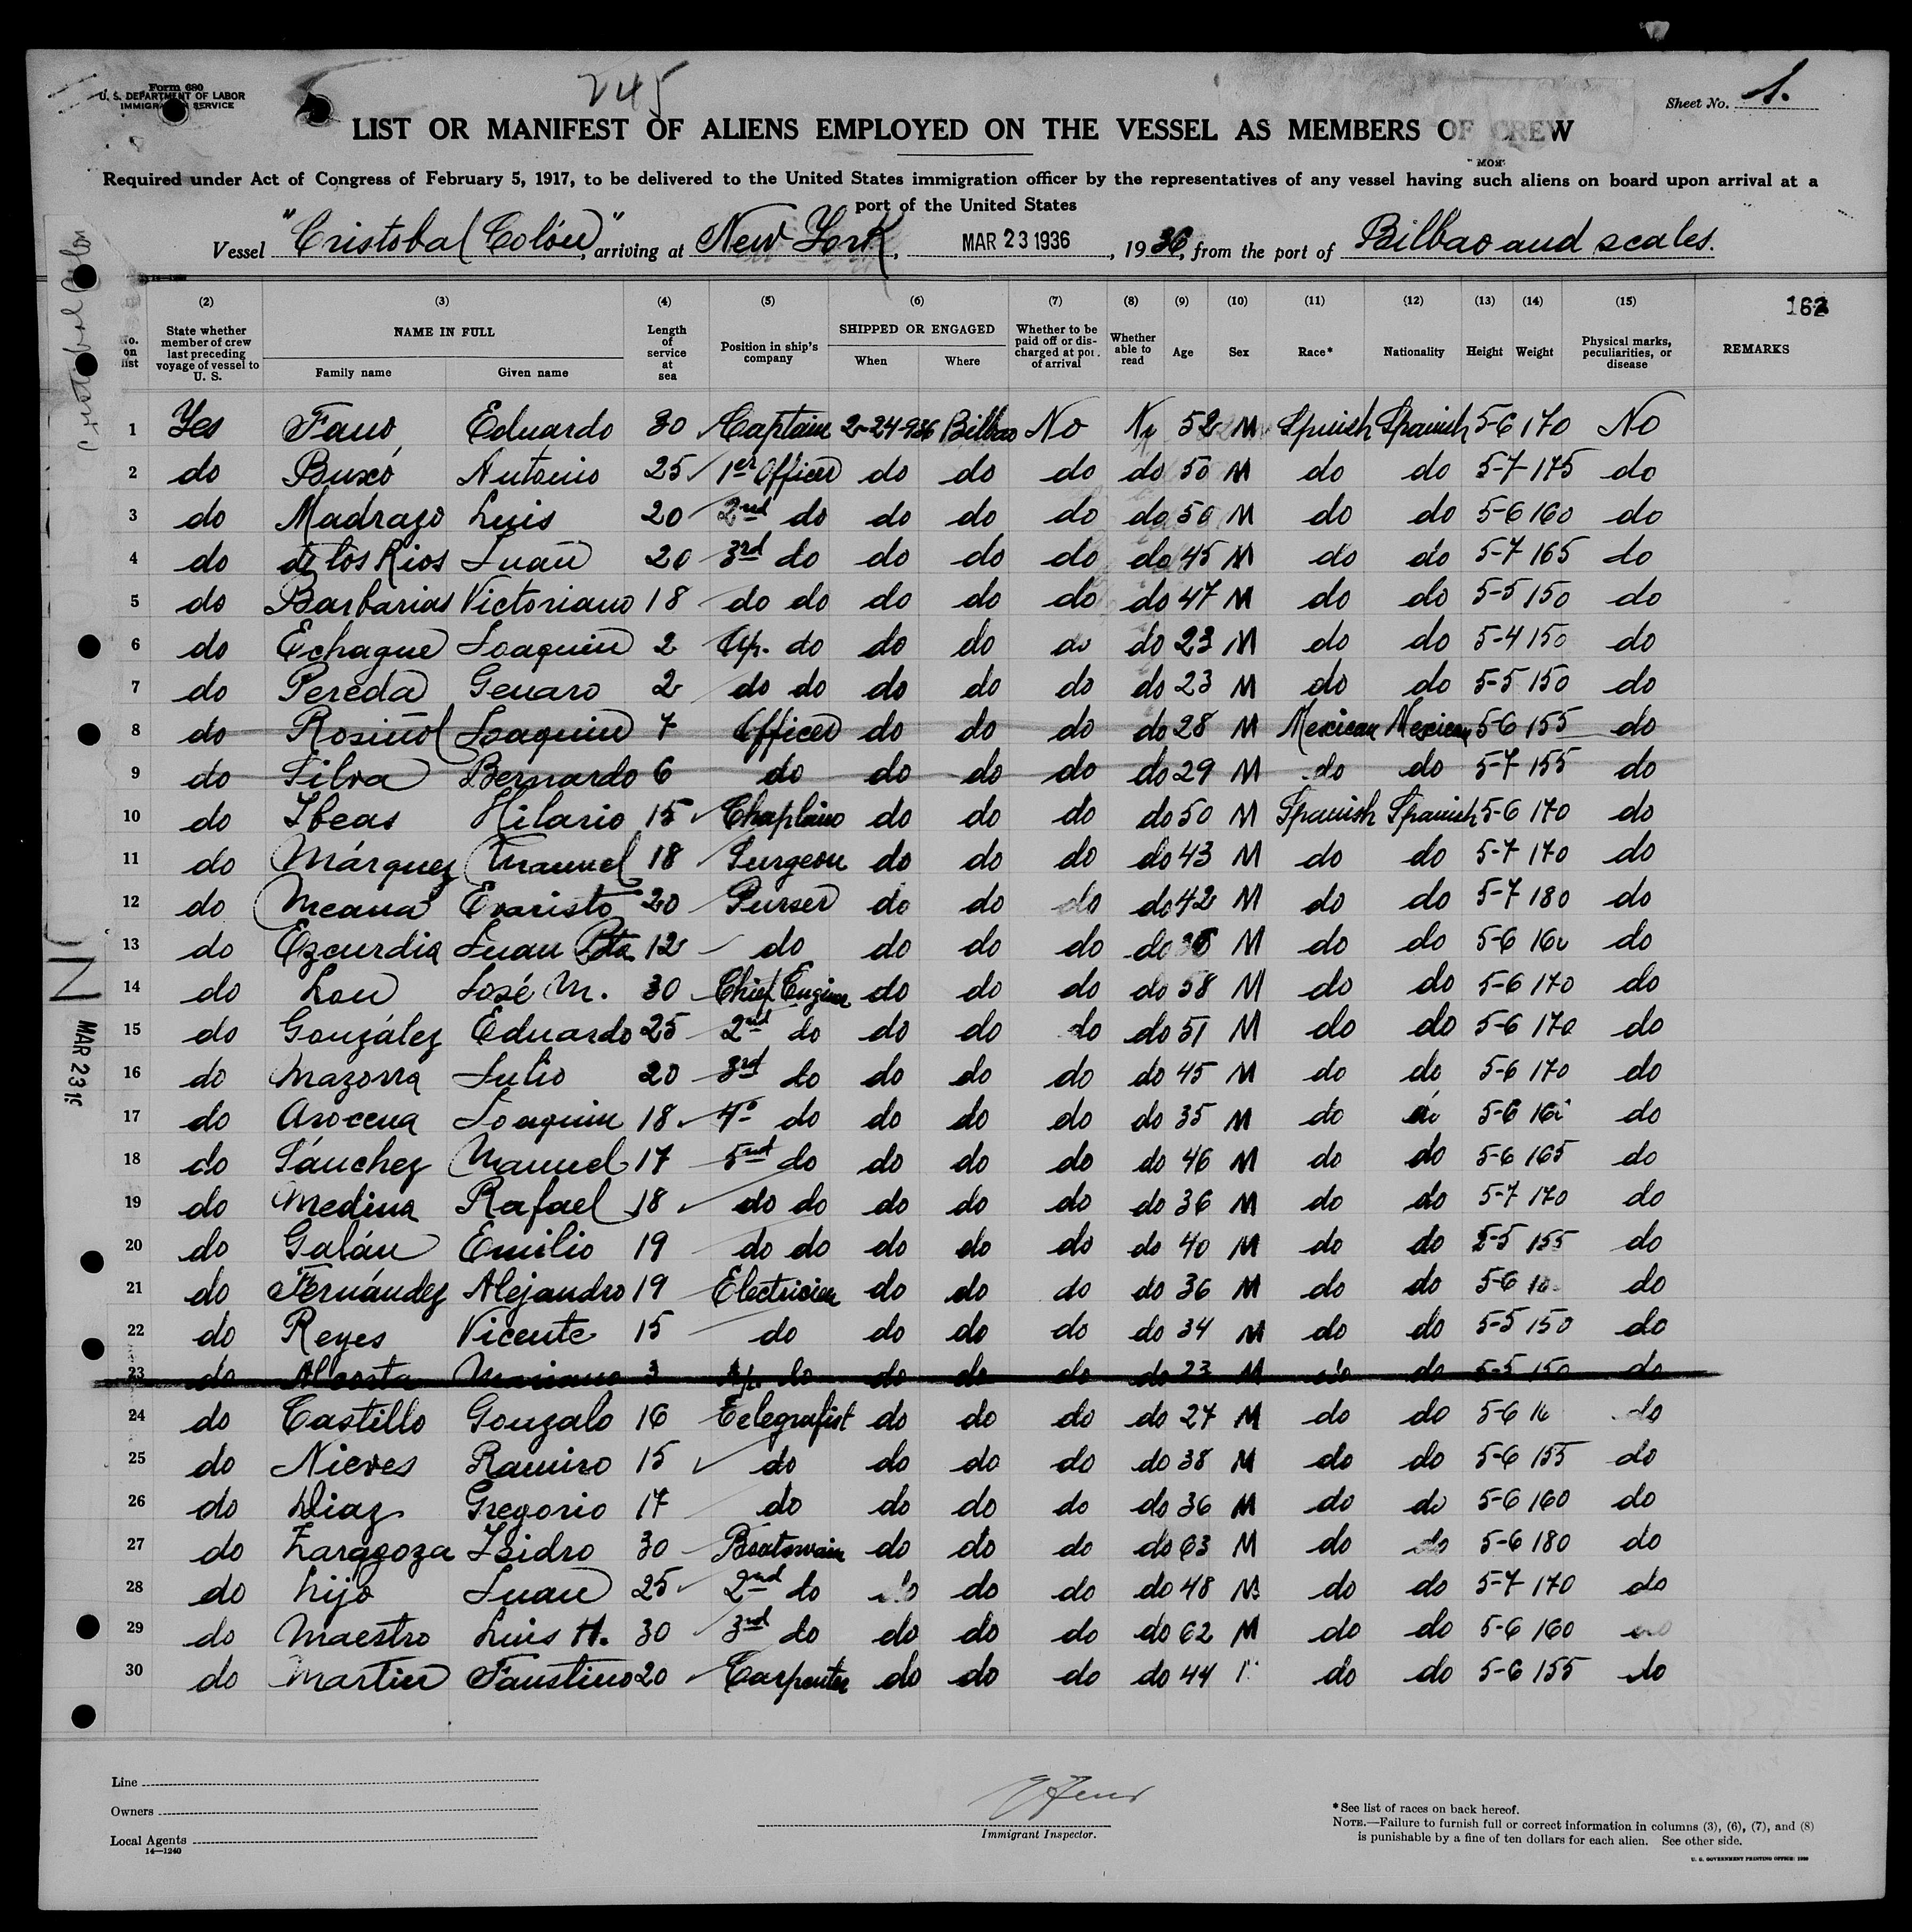 Form 680
U. S. DEPARTMENT OF LABOR
IMMIGRATION SERVICE
245
Sheet No. 1.
LIST OR MANIFEST OF ALIENS EMPLOYED ON THE VESSEL AS MEMBERS OF CREW
Required under Act of Congress of February 5, 1917, to be delivered to the United States immigration officer by the representatives of any vessel having such aliens on board upon arrival at a
port of the United States
Vessel "Cristobal Colón", arriving at New York, MAR 23 1936, 1936, from the port of Bilbao and scales.
Cristobal Colon
(2) (3) (4) (5) (6) (7) (8) (9) (10) (11) (12) (13) (14) (15) 162
No. on list State whether member of crew last preceding voyage of vessel to U. S. NAME IN FULL Family name Given name Length of service at sea Position in ship's company SHIPPED OR ENGAGED When Where Whether to be paid off or discharged at port of arrival Whether able to read Age Sex Race* Nationality Height Weight Physical marks, peculiarities, or disease REMARKS
1 Yes Fanó Eduardo 30 Captain 2-24-936 Bilbao No 52 M Spanish Spanish 5-6 170 No
2 do Buxó Antonio 25 1er Officer do do do do 50 M do do 5-7 175 do
3 do Madrazo Luis 20 2nd do do do do do 50 M do do 5-6 160 do
4 do de los Rios Juan 20 3rd do do do do do 45 M do do 5-7 165 do
5 do Barbarias Victoriano 18 do do do do do do 47 M do do 5-5 150 do
6 do Echague Joaquin 2 Ap. do do do do do 23 M do do 5-4 150 do
7 do Pereda Genaro 2 do do do do do do 23 M do do 5-5 150 do
8 do Rosiñol Joaquin 7 Officer do do do do 28 M Mexican Mexican 5-6 155 do
9 do Silva Bernardo 6 do do do do do 29 M do do 5-7 155 do
10 do Ibeas Hilario 15 Chaplain do do do do 50 M Spanish Spanish 5-6 170 do
11 do Márquez Manuel 18 Surgeon do do do do 43 M do do 5-7 170 do
12 do Meana Evaristo 20 Purser do do do do 42 M do do 5-7 180 do
13 do Ezcurdia Juan Bta 12 do do do do do M do do 5-6 160 do
14 do Lou José M. 30 Chief Engineer do do do do 58 M do do 5-6 170 do
15 do González Eduardo 25 2nd do do do do do 51 M do do 5-6 170 do
16 do Mazorra Julio 20 3rd do do do do do 45 M do do 5-6 170 do
17 do Arocena Joaquin 18 4º do do do do do 35 M do do 5-6 160 do
18 do Sánchez Manuel 17 5nd do do do do do 46 M do do 5-6 165 do
19 do Medina Rafael 18 do do do do do do 36 M do do 5-7 170 do
20 do Galán Emilio 19 do do do do do do 40 M do do 5-5 155 do
21 do Fernández Alejandro 19 Electricien do do do do 36 M do do 5-6 do
22 do Reyes Vicente 15 do do do do do 34 M do do 5-5 150 do
23 do Acosta Mariano 3 Ap. do do do do do 23 M do do 5-5 150 do
24 do Castillo Gonzalo 16 Telegrafist do do do do 27 M do do 5-6 do
25 do Nieves Ramiro 15 do do do do do 38 M do do 5-6 155 do
26 do Diaz Gregorio 17 do do do do do 36 M do do 5-6 160 do
27 do Zaragoza Isidro 30 Boatswain do do do do 63 M do do 5-6 180 do
28 do Lijó Juan 25 2nd do do do do do 48 M do do 5-7 170 do
29 do Maestro Luis H. 30 3rd do do do do do 62 M do do 5-6 160 do
30 do Martin Faustino 20 Carpenter do do do do 44 do do 5-6 155 do
MAR 23 19
Line
Owners
Local Agents
14—1240
Immigrant Inspector.
*See list of races on back hereof.
NOTE.—Failure to furnish full or correct information in columns (3), (6), (7), and (8)
is punishable by a fine of ten dollars for each alien. See other side.
U. S. GOVERNMENT PRINTING OFFICE: 1930